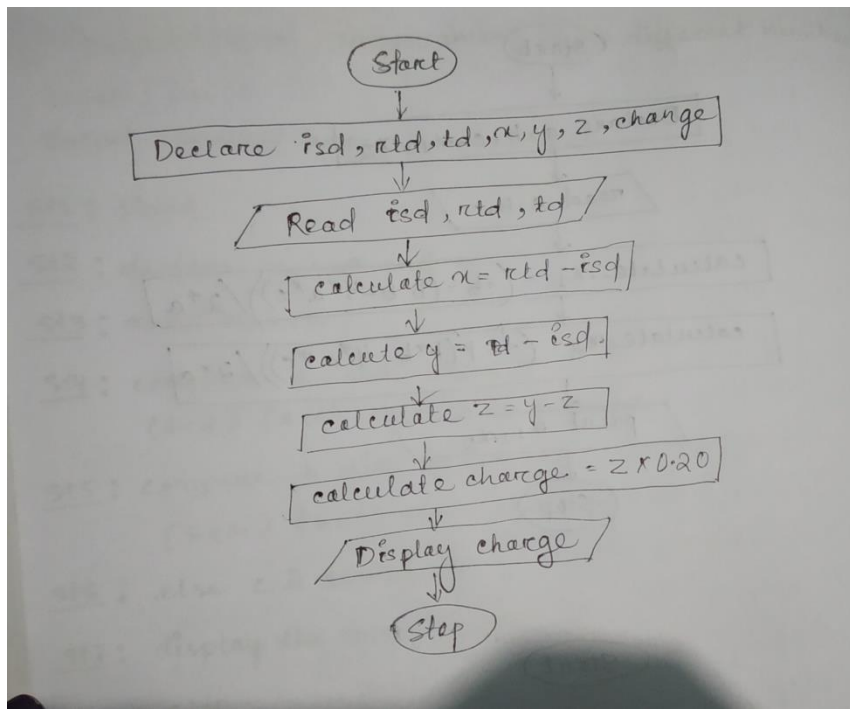 Start
Declare isd, rtd, td, x, y, z, charge
Read isd, rtd, td
calculate x = rtd - isd
calcute y = td - isd.
calculate z = y - z
calculate charge = z x 0.20
Display charge
Stop